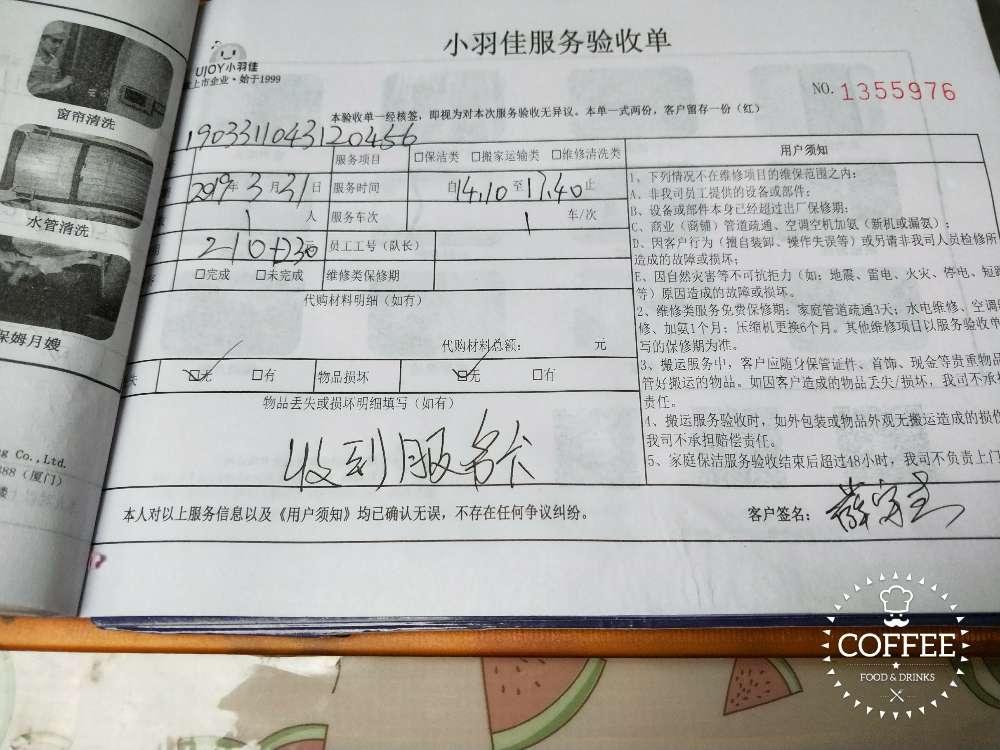 小羽佳服务验收单
UJOY小羽佳
上市企业·始于1999
NO. 1355976
本验收单一经核签，即视为对本次服务验收无异议。本单一式两份，客户留存一份（红）
190331104312​0456
服务项目 □保洁类 □搬家运输类 □维修清洗类
2019年3月31日 服务时间 自14.10至17.40止
1 人 服务车次 1 车/次
员工工号（队长）
□完成 □未完成 维修类保修期
代购材料明细（如有）
代购材料总额： 元
☑无 □有 物品损坏 ☑无 □有
物品丢失或损坏明细填写（如有）
收到服务卡
本人对以上服务信息以及《用户须知》均已确认无误，不存在任何争议纠纷。
客户签名：
用户须知
1、下列情况不在维修项目的维保范围之内：
A、非我司员工提供的设备或部件；
B、设备或部件本身已经超过出厂保修期；
C、商业（商铺）管道疏通、空调空机加氨（新机或漏氨）；
D、因客户行为（擅自装卸、操作失误等）或另请非我司人员检修所
造成的故障或损坏；
E、因自然灾害等不可抗拒力（如：地震、雷电、火灾、停电、短路
等）原因造成的故障或损坏。
2、维修类服务免费保修期：家庭管道疏通3天；水电维修、空调
修、加氨1个月；压缩机更换6个月。其他维修项目以服务验收单
写的保修期为准。
3、搬运服务中，客户应随身保管证件、首饰、现金等贵重物品
管好搬运的物品。如因客户造成的物品丢失/损坏，我司不承担
责任。
4、搬运服务验收时，如外包装或物品外观无搬运造成的损伤
我司不承担赔偿责任。
5、家庭保洁服务验收结束后超过48小时，我司不负责上门
窗帘清洗
水管清洗
保姆月嫂
Co.,Ltd.
388（厦门）
楼
COFFEE
FOOD & DRINKS